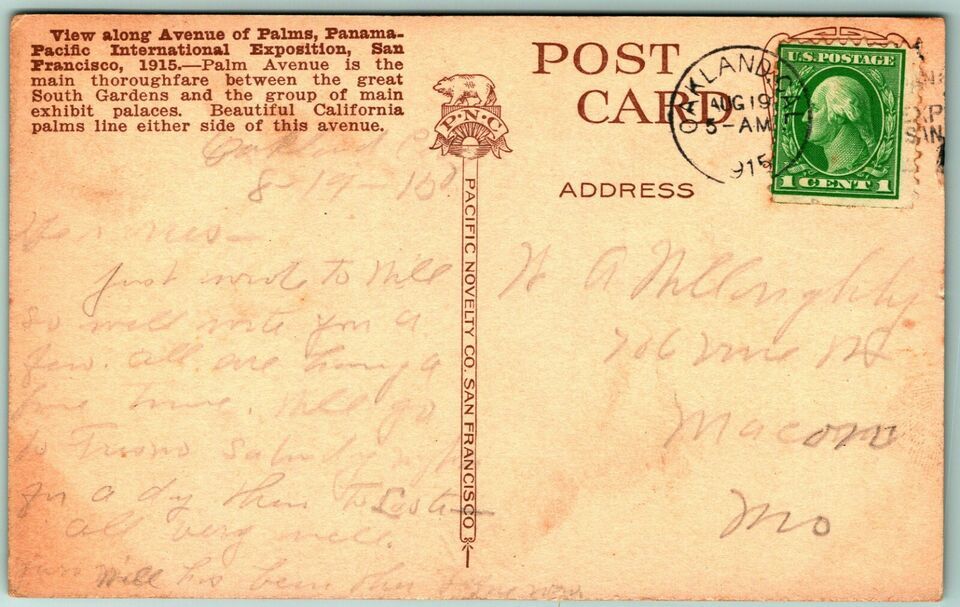 View along Avenue of Palms, Panama-
Pacific International Exposition, San
Francisco, 1915.—Palm Avenue is the
main thoroughfare between the great
South Gardens and the group of main
exhibit palaces. Beautiful California
palms line either side of this avenue.
P·N·C
PACIFIC NOVELTY CO. SAN FRANCISCO
POST
CARD
ADDRESS
OAKLAND, CAL.
AUG 19
5-AM
1915
U.S. POSTAGE
1 CENT 1
XP
SAN
Oakland
8-19-15
Just wrote to Will
so will write you a
few. all are having a
fine time. Will go
to Fresno Saturday night
for a dy then to
all very well.
Will has been
W A Willoughby
706 Vine St
Macon
Mo